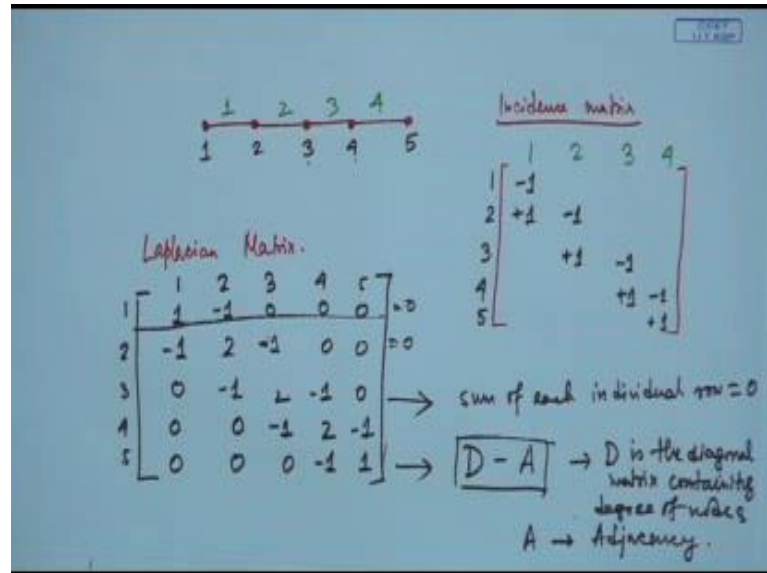 1 2 3 4
1 2 3 4 5
Incidence matrix
1 2 3 4
1 -1
2 +1 -1
3 +1 -1
4 +1 -1
5 +1
Laplacian Matrix.
1 2 3 4 5
1 1 -1 0 0 0 =0
2 -1 2 -1 0 0 =0
3 0 -1 2 -1 0 → sum of each individual row = 0
4 0 0 -1 2 -1
5 0 0 0 -1 1 → D - A → D is the diagonal
matrix containing
degree of nodes
A → Adjacency.